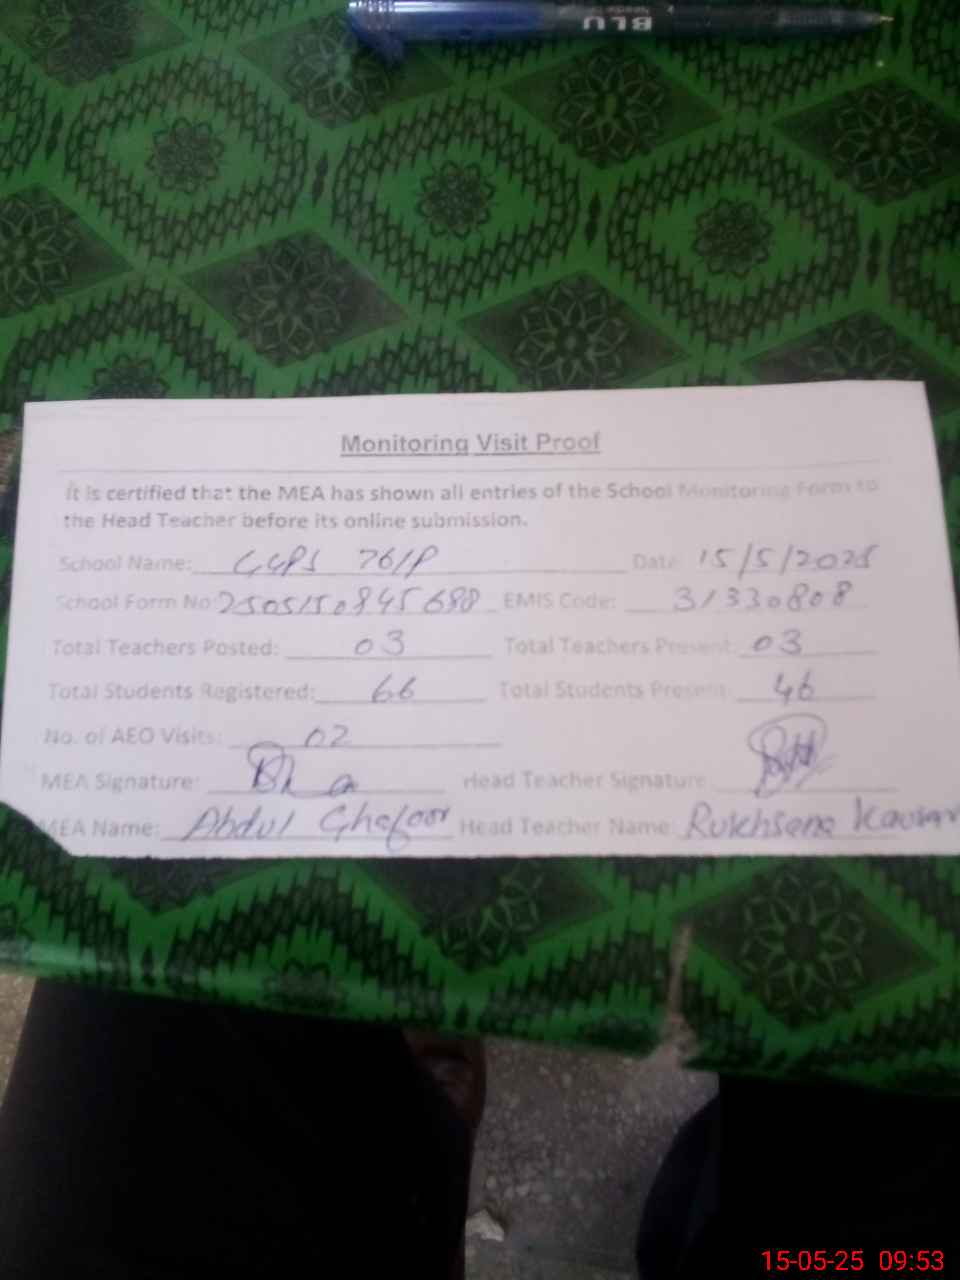 BLU
Monitoring Visit Proof
It is certified that the MEA has shown all entries of the School Monitoring Form to
the Head Teacher before its online submission.
School Name: GGPS 76/P Date 15/5/2025
School Form No: 2505150845688 EMIS Code: 31330808
Total Teachers Posted: 03 Total Teachers Present: 03
Total Students Registered: 66 Total Students Present: 46
No. of AEO Visits: 02
MEA Signature: Head Teacher Signature
MEA Name: Abdul Ghafoor Head Teacher Name: Rukhsana Kausar
15-05-25 09:53